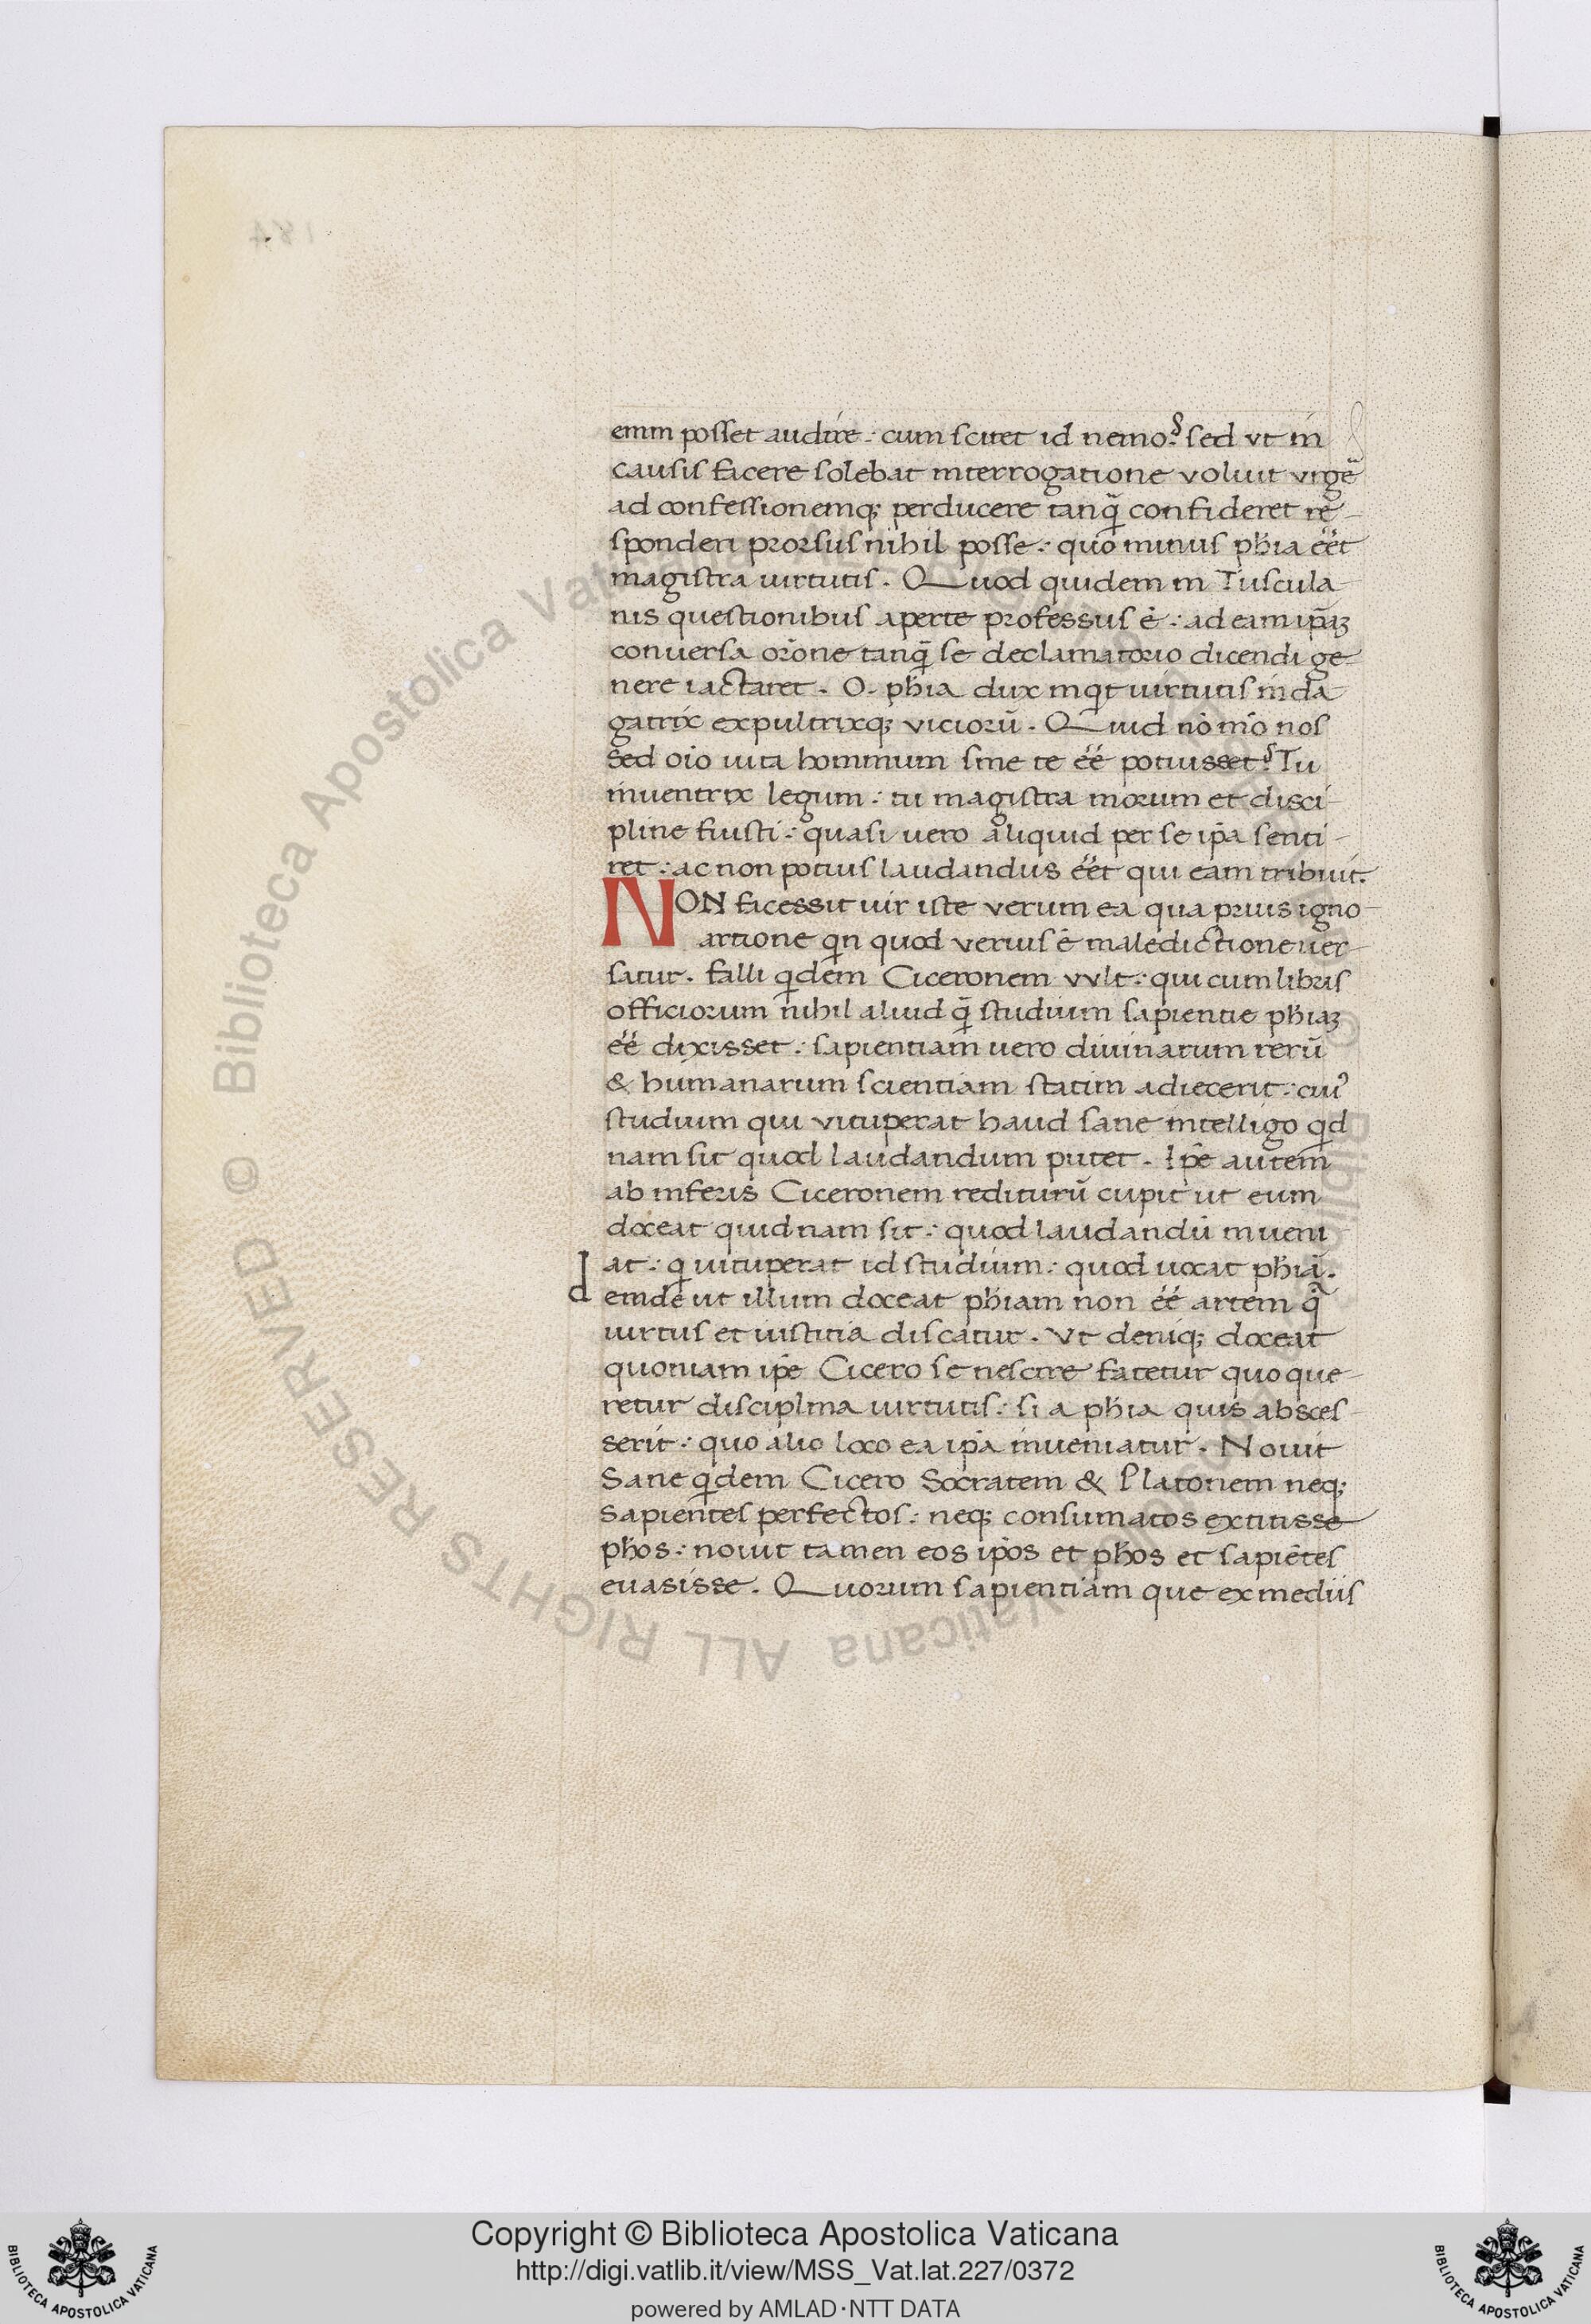 enim posset audire : cum sciret id nemo ? sed vt in
causis facere solebat interrogatione voluit vrgē
ad confessionemq; perducere tanq̄ confideret re-
sponderi prorsus nihil posse : quo minus phīa eēt
magistra uirtutis . Quod quidem in Tuscula
nis questionibus aperte professus ē : ad eam ip̄aȝ
conuersa or̄one tanq̄ se declamatorio dicendi ge-
nere iactaret . O . phīa dux inqt uirtutis inda
gatrix expultrixq; viciorū . Quid nō mō nos
sed oīo uita hominum sine te eē potuisset ? Tu
inuentrix legum : tu magistra morum et disci-
pline fuisti : quasi uero aliquid per se ip̄a senti-
ret : ac non potius laudandus eēt qui eam tribuit.
NON facessit uir iste verum ea qua prius igno-
artione qn quod verius ē maledictione uer-
satur . falli qdem Ciceronem vult : qui cum libris
officiorum nihil aliud q̄ studium sapientie phiaȝ
eē dixisset : sapientiam uero diuinarum rerū
& humanarum scientiam statim adiecerit : cui⁹
studium qui vituperat haud sane intelligo qd
nam sit quod laudandum putet . Ip̄e autem
ab inferis Ciceronem rediturū cupit ut eum
doceat quidnam sit : quod laudandū inueni
at : q uituperat id studium : quod uocat phiā .
d einde ut illum doceat phiam non eē artem q̄
uirtus et iustitia discatur . Vt deniq; doceat
quoniam ip̄e Cicero se nescire fatetur quo que-
retur disciplina uirtutis : si a phia quis absces-
serit : quo alio loco ea ip̄a inueniatur . Nouit
Sane qdem Cicero Socratem & Platonem neq;
sapientes perfectos : neq; consumatos extitisse
phōs : nouit tamen eos ip̄os et phōs et sapiētes
euasisse . Quorum sapientiam que ex mediis
© Biblioteca Apostolica Vaticana ALL RIGHTS RESERVED
Copyright © Biblioteca Apostolica Vaticana
http://digi.vatlib.it/view/MSS_Vat.lat.227/0372
powered by AMLAD·NTT DATA
BIBLIOTECA APOSTOLICA VATICANA
BIBLIOTECA APOSTOLICA VATICANA